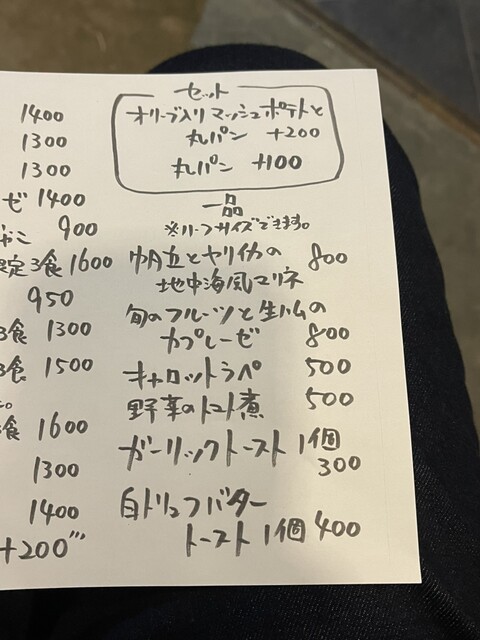 1400
1300
1300
ゼ 1400
900
限定3食 1600
950
3食 1300
3食 1500
食 1600
1300
1400
+200
セット
オリーブ入りマッシュポテトと
丸パン +200
丸パン +100
一品
※ハーフサイズできます。
帆立とヤリイカの 800
地中海風マリネ
旬のフルーツと生ハムの
カプレーゼ 800
キャロットラペ 500
野菜のトマト煮 500
ガーリックトースト 1個
300
白トリュフバター
トースト 1個 400